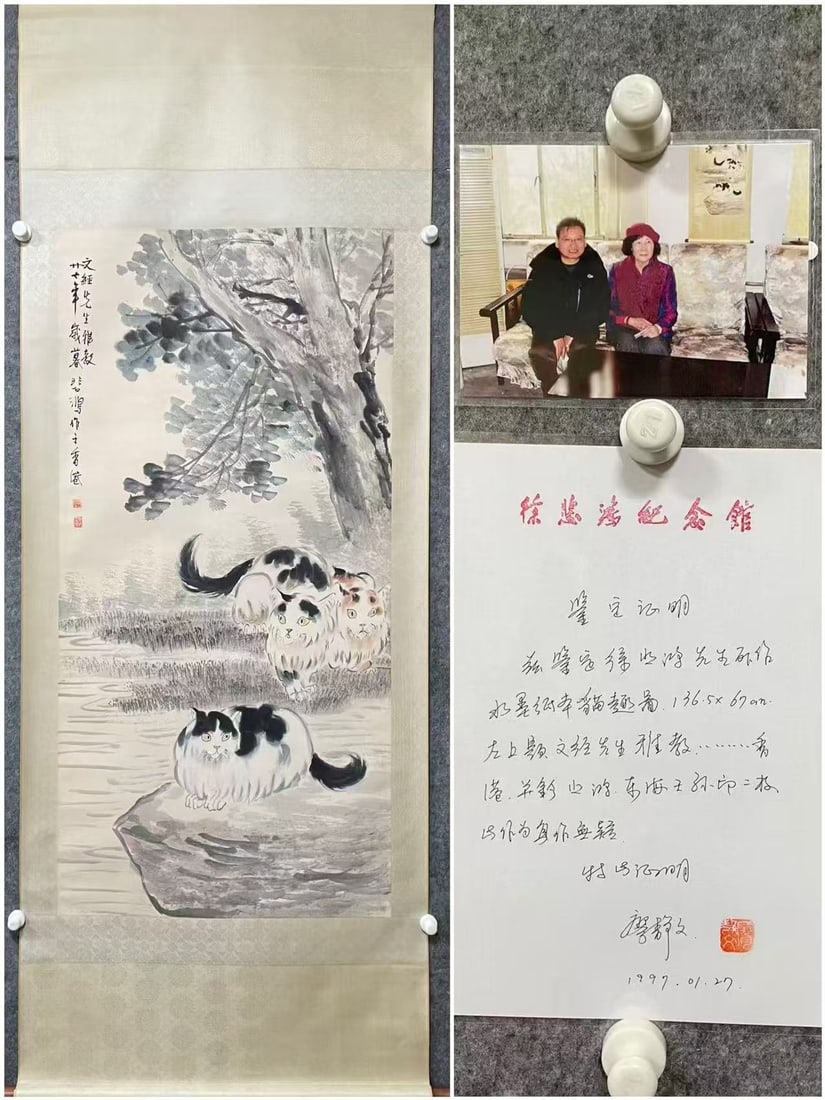 文經先生雅教
廿七年歲暮 悲鴻作于香港
徐悲鸿纪念馆
鉴定证明
兹鉴定徐悲鸿先生所作
水墨纸本猫趣图.136.5×67cm.
左上题文经先生雅教………香
港.并钤悲鸿.东海王孙印二枚.
此作为真作无疑.
特此证明
廖静文
1997.01.27.